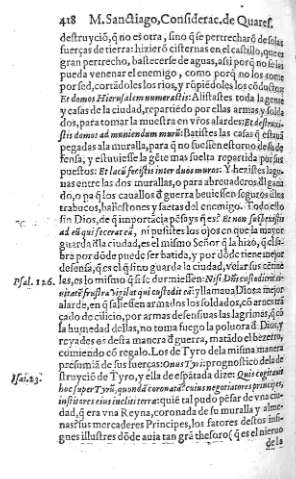 428 M. Sanctiago, Considerac. de Quares.
destruyciō, q̄ no es otra, sino q̄ se pertrecharō de solas
fuerças de tierra: hizierō cisternas en el castillo, que es
gran pertrecho, bastecerse de aguas, assi porq̄ no se las
pueda venenar el enemigo, como porq̄ no los tome
por sed, cortādoles los rios, y rōpiēdoles los cōductos:
Et domos Hierusalem numerastis: Alistastes toda la gente
y casas de la ciudad, repartiēdo por ellas armas y solda
dos, para tomar la muestra en vr̄os alardes: Et destruxi
stis domos ad muniendam murū: Batistes las casas q̄ estauā
pegadas ala muralla, para q̄ no fuessen estorno de su de
fensa, y estuuiesse la gēte mas suelta repartida por sus
puestos: Et lacū fecistis inter duos muros: Y hezistes lagu
nas entre las dos murallas, o para abreuaderos dl gana
do, o pa q̄ los cauallos d̄ guerra beuiessen seguros d̄ los
trabucos, ballestones y saetas del enemigo. Todo esto
sin Dios, de q̄ importācia pēsays q̄ es? Et non suspexistis
ad eū qui fecerat eā, ni pusistes los ojos en que la mayor
guarda d̄ la ciudad, es el mismo Señor q̄ la hizo, q̄ si sa-
bra por dōde puede ser batida, y por dōde tiene mejor
defensa, q̄ es el q̄ si no guarda la ciudad, velar sus cētine
Psal. 126. las, es lo mismo q̄ si se durmiessen: Nisi Dn̄s custodierit ci-
uitatē frustra vigilat qui custodit eā: y llamaua Dios a mejor
alarde, en q̄ saliessen armados los soldados, cō arnes trā
çado de cilicio, por armas defensiuas las lagrimas, q̄ cō
la humedad dellas, no toma fuego la poluora d̄ Dios, y
reyades os desta manera d̄ guerra, matādo el bezerro,
comiendo cō regalo. Los de Tyro dela misma manera
presumiā de sus fuerças: Onus Tyri: prognostico de la de
Isai. 23. struyciō de Tyro, y ella de espātada dize: Quis cogitauit
hoc super Tyrū, quondā coronatā? cuius negotiatores principes,
institores eius inclyti terræ: quiē tal pudo pēsar de vna ciu-
dad, q̄ era vna Reyna, coronada de su muralla y alme-
nas? sus mercaderes Principes, los fatores destos insi-
gnes illustres dōde auia tan grā thesoro (q̄ es el nieruo
de la